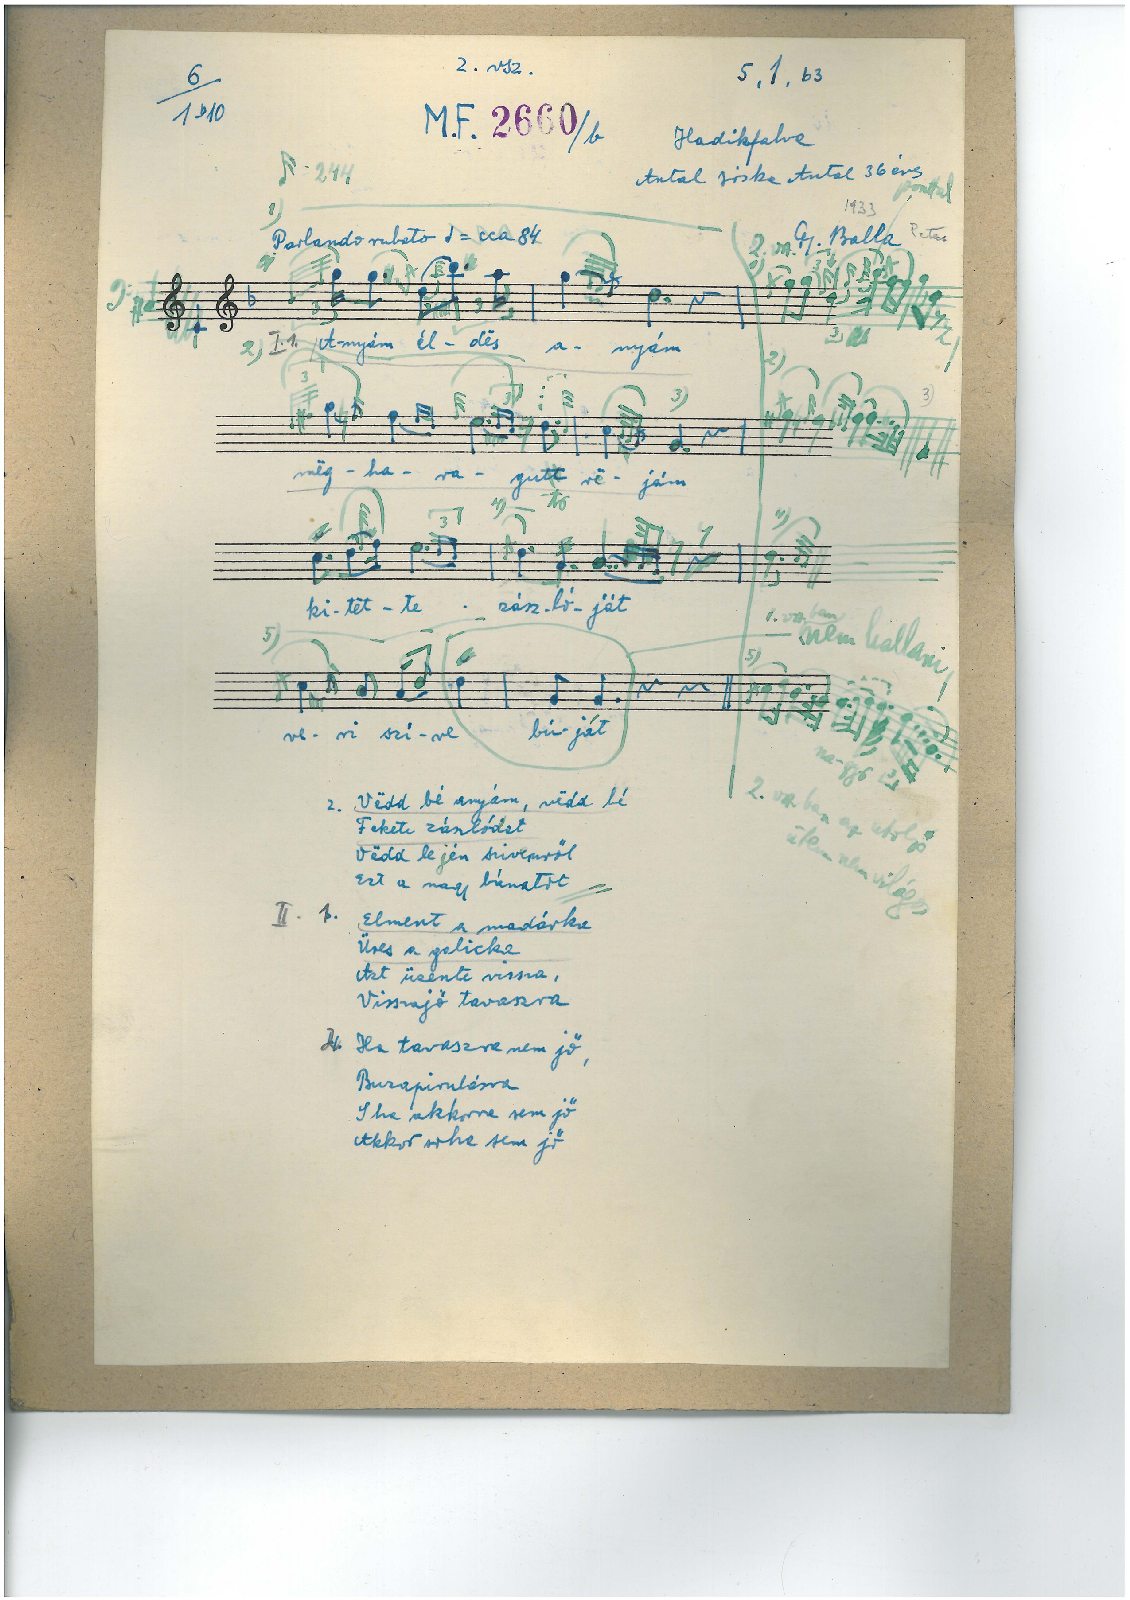 6 2. vsz. 5, 1, b3
1-10
M.F. 2660/b Hadikfalva
Antal Jóska Antal 36 éves
= 244
1) 1933
Parlando rubato = cca 84 2. vsz. Gy. Balla
2) I. 1. A-nyám él - dës a - nyám
3 3) 2)
mëg - ha - ra - gutt rë - jám
4) 3 4)
ki-tët - te zász-ló-ját
1. vsz. ban
5) nem hallani! 5)
ve - ri szí-ve bú-ját
na-gyo
2. vsz. ban az utolsó
ütem nem világos
2. Vëdd bé anyám, vëdd bé
Fekete zászlódat
Vëdd lején szivemről
Ezt a nagy bánatot
II. 1. Elment a madárka
Üres a galicka
Azt üzente vissza,
Visszajő tavaszra
2. Ha tavaszra nem jő,
Buzapirulásra
S ha akkorra sem jő
Akkor soha sem jő